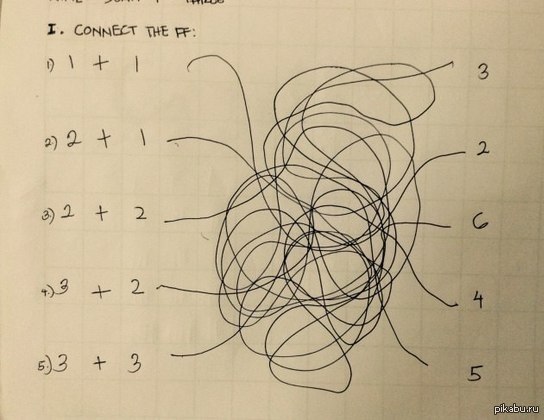 I. CONNECT THE FF:
1) 1 + 1 3
2) 2 + 1 2
3) 2 + 2 6
4.) 3 + 2 4
5.) 3 + 3 5
pikabu.ru